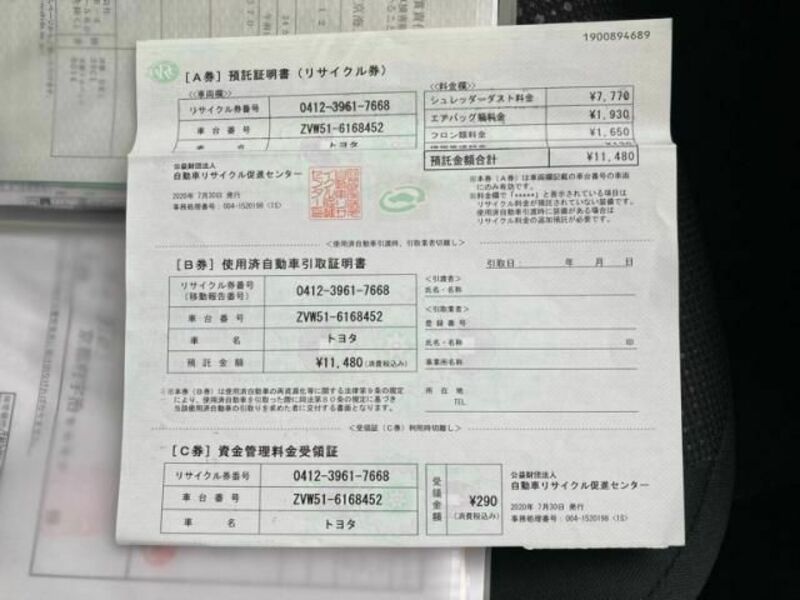 1900894689
[A券] 預託証明書(リサイクル券)
<車両欄>
リサイクル券番号 0412-3961-7668
車台番号 ZVW51-6168452
車名 トヨタ
<料金欄>
シュレッダーダスト料金 ¥7,770
エアバッグ類料金 ¥1,930
フロン類料金 ¥1,650
預託金額合計 ¥11,480
公益財団法人
自動車リサイクル促進センター
2020年 7月30日 発行
事務処理番号:004-1520198 <1S>
※本券(A券)は車両欄記載の車台番号の車両
にのみ有効です。
※料金欄で「*****」と表示されている項目は
リサイクル料金が預託されていない装備です。
使用済自動車引渡時に装備がある場合は
リサイクル料金の追加預託が必要です。
<使用済自動車引渡時、引取業者切離し>
[B券] 使用済自動車引取証明書
引取日: 年 月 日
リサイクル券番号
(移動報告番号) 0412-3961-7668
車台番号 ZVW51-6168452
車名 トヨタ
預託金額 ¥11,480(消費税込み)
<引渡者>
氏名・名称
<引取業者>
登録番号
氏名・名称 印
事業所名称
所在地
TEL
※本券(B券)は使用済自動車の再資源化等に関する法律第9条の規定
により、使用済自動車を引取った際に同法第80条の規定に基づき
当該使用済自動車の引取りを求めた者に交付する書面となります。
<受領証(C券)利用時切離し>
[C券] 資金管理料金受領証
リサイクル券番号 0412-3961-7668
車台番号 ZVW51-6168452
車名 トヨタ
受領金額 ¥290
(消費税込み)
公益財団法人
自動車リサイクル促進センター
2020年 7月30日 発行
事務処理番号:004-1520198 <1S>